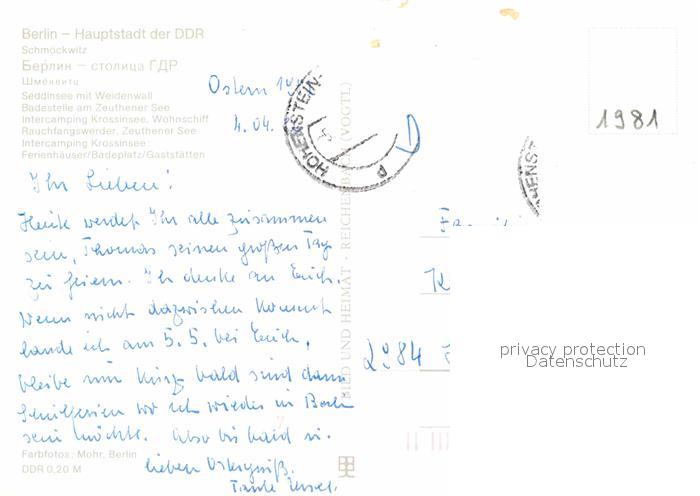 Berlin – Hauptstadt der DDR
Schmöckwitz
Берлин – столица ГДР
Шмёквитц
Seddinsee mit Weidenwall
Badestelle am Zeuthener See
Intercamping Krossinsee, Wohnschiff
Rauchfangswerder, Zeuthener See
Intercamping Krossinsee:
Ferienhäuser/Badeplatz/Gaststätten
Ostern
4.04.
HOHENSTEIN-
P
1981
ENST
Ihr Lieben!
Heute werdet Ihr alle zusammen
sein, Thomas seinen großen Tag
zu feiern. Ich denke an Euch.
Wenn nichts dazwischen kommt
lande ich am 5.5. bei Euch,
bleibe nur kurz, bald sind dann
wo ich wieder in Berlin
sein möchte. Also bis bald u.
lieben Ostergruß.
Tante
BILD UND HEIMAT · REICHENBACH (VOGTL)
privacy protection
Datenschutz
Farbfotos: Mohr, Berlin
DDR 0,20 M